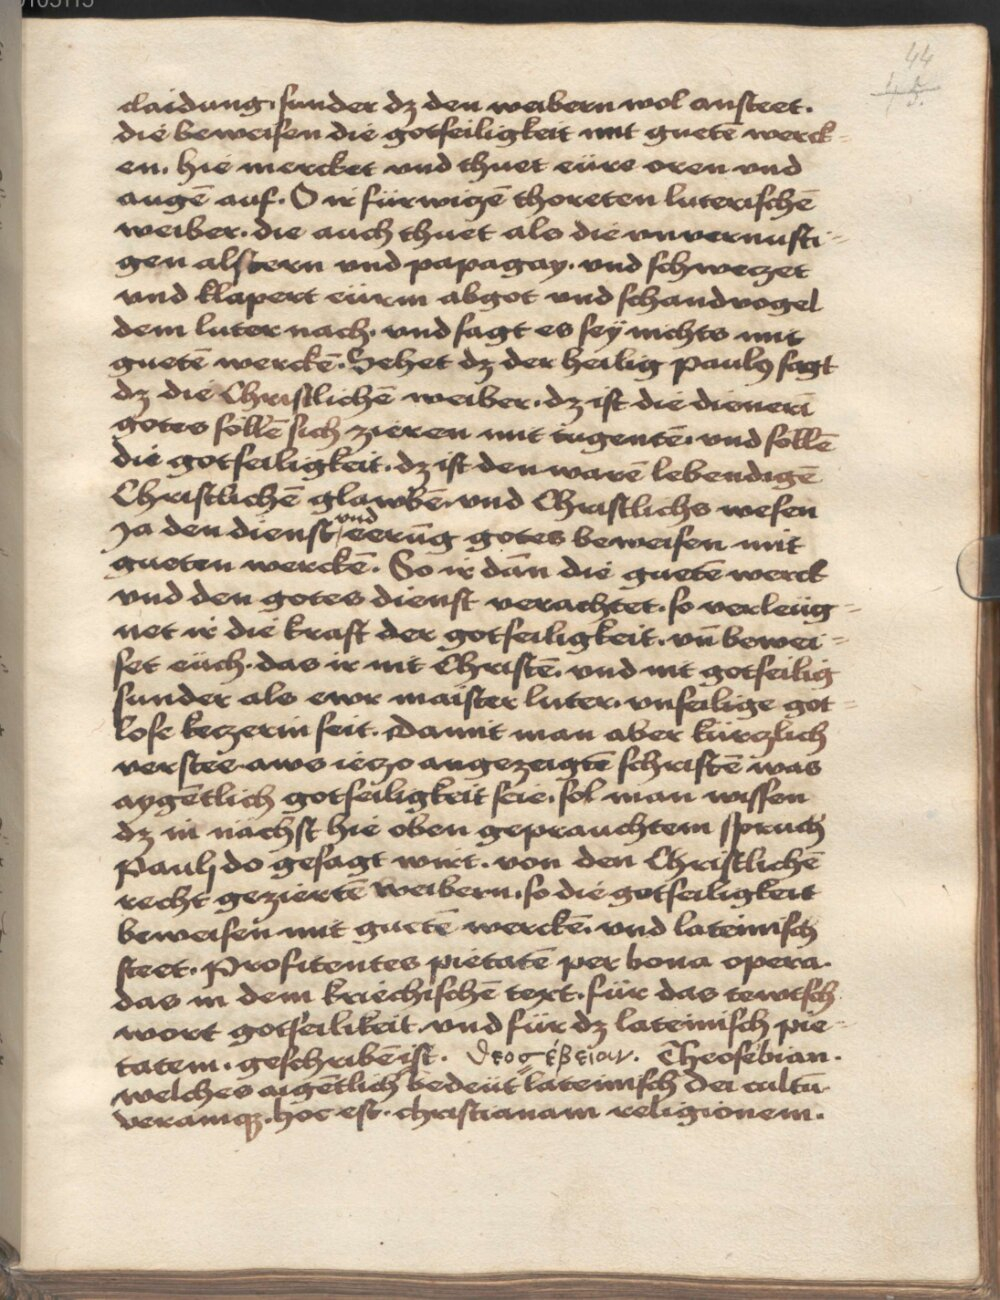 44
claidung. sunder dz den weibern wol ansteet.
die beweisen die gotseiligkeit mit guetē werck-
en. hie mercket vnd thuet eüre oren vnd
augē auf. O ir fürwizē thoreten luterischē
weiber. die auch thuet als die vnvernufti-
gen alstern vnd papagay. vnd schwezet
vnd klapert eürm abgot vnd schandvogel
dem luter nach. vnd sagt es sey nichts mit
guetē werckē. Sehet dz der heilig Paulꝰ sagt
dz die Christlichē weiber. dz ist die dienerī
gotes sollē sich zieren mit tugentē. vnd sollē
die gotseiligkeit. dz ist den warē lebendigē
Christlichē glawbē. vnd Christlichs wesen
Ja den dienst vnd eerūg gotes beweisen mit
gueten werckē. So ir dān die guetē werck
vnd den gotes dienst verachtet. so verleüg-
net ir die kraft der gotseiligkeit. vn̄ bewei-
set eüch. das ir nit Christē. vnd nit gotseilig
sunder als ewr maister luter. vnseilige got-
lose kezerin seit. Damit man aber kürzlich
verstee aws iezo angezaigtē schriftē was
aygētlich gotseiligkeit seie. sol man wissen
dz in nächst hie oben geprauchtem spruch
Pauli do gesagt wirt. von den Christlichē
recht geziertē weibern. so die gotseiligkeit
beweisen mit guetē werckē. vnd lateinisch
steet. Profitentes pietatē per bona opera.
das in dem kriechischē text. für das tewtsch
wort gotseilikeit. vnd für dz lateinisch pie-
tatem. geschribē ist. θεοσέβειαν. Theosebian.
welches aigētlich bedeüt lateinisch dei cultū
veramqꝫ. hoc est. christianam religionem.